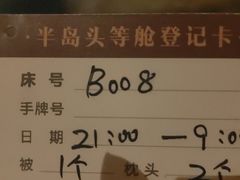 半岛头等舱登记卡
床号 B008
手牌号
日期 21:00 — 9:00
被 1个 枕头 2个